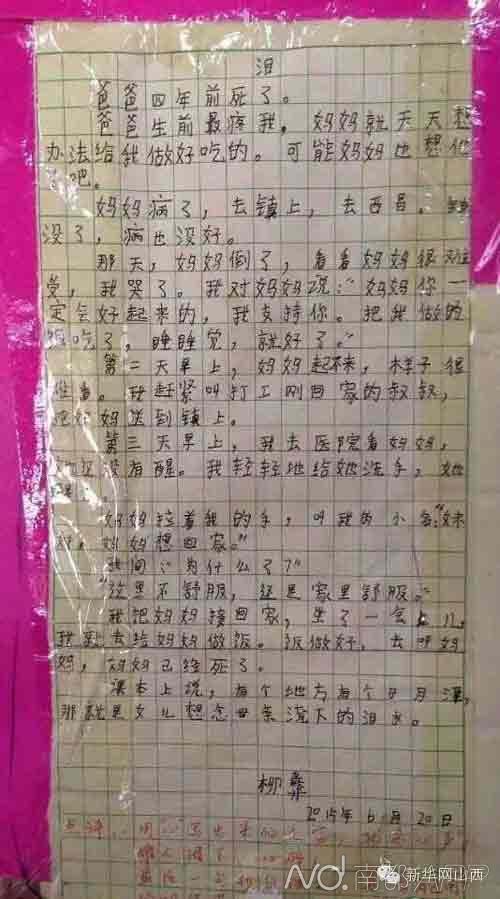 泪
爸爸四年前死了。
爸爸生前最疼我，妈妈就天天想
办法给我做好吃的。可能妈妈也想他
吧。
妈妈病了，去镇上，去西昌。
没了，病也没好。
那天，妈妈倒了，看看妈妈很难
受，我哭了。我对妈妈说：“妈妈你一
定会好起来的，我支持你。把我做的
饭吃了，睡睡觉，就好了。”
第二天早上，妈妈起不来，样子很
难看。我赶紧叫打工刚回家的叔叔，
把妈妈送到镇上。
第三天早上，我去医院看妈妈，
她还没有醒。我轻轻地给她洗手，她
妈妈拉着我的手，叫我的小名：“妹
妹，妈妈想回家。”
我问：“为什么了？”
“这里不舒服，还是家里舒服。”
我把妈妈接回家，坐了一会儿，
我就去给妈妈做饭。饭做好，去叫妈
妈，妈妈已经死了。
课本上说，有个地方有个日月潭，
那就是女儿想念母亲流下的泪水。
柳彝
2015年6月20日
南都APP
新华网山西